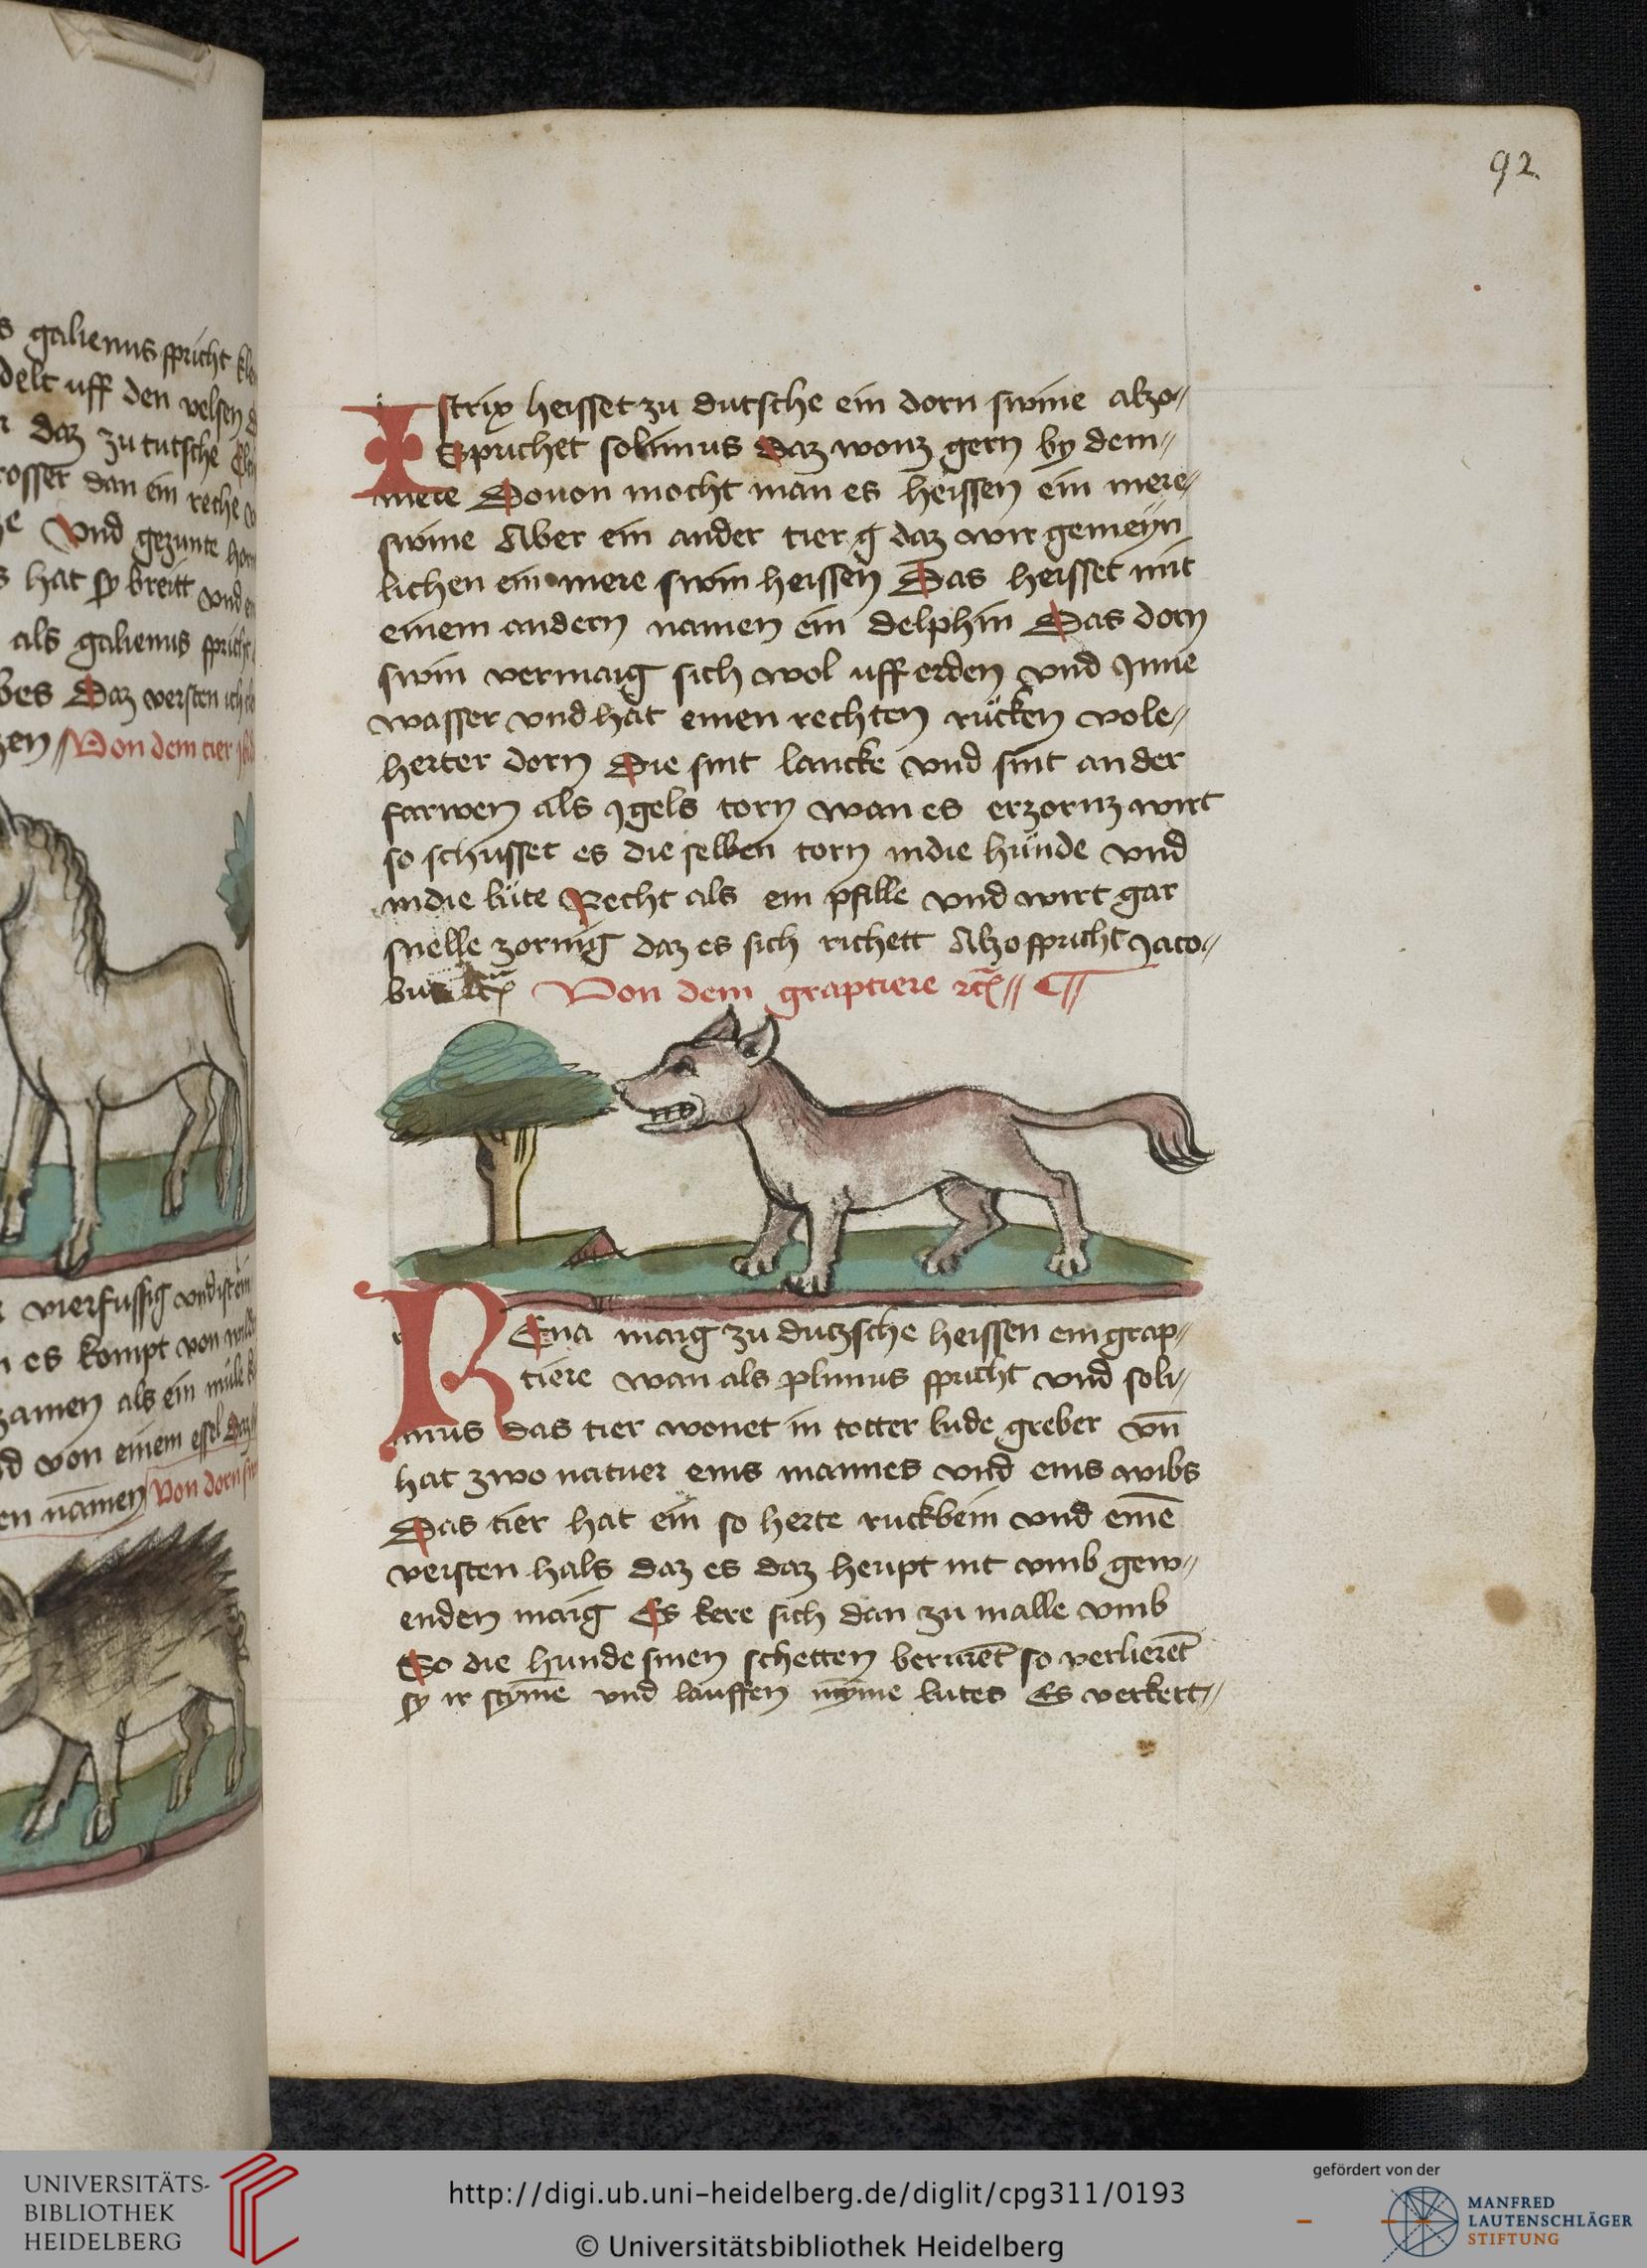 s galienus spricht
delt uff den velsen
daz zu tutsche
rosser dan ein reche
Vnd gezunte
hat sy breitt vnd
als galienus spricht
bes Daz versten ich
zen Von dem tier
vierfussig vnd ist ein
es kompt von
zamen als ein mule
d von einem essel
en namen Von dorn
92
Istrix heisset zu dutsche ein dorn swine alzo〃
Sprichet solinus Daz wonz gern by dem〃
mere Douon mocht man es heissen ein mere〃
swine Aber ein ander tier daz wir gemeyn
lichen ein mere swin heissen Das heisset mit
einem andern namen ein delphin Das dorn
swin vermaig sich wol uff erden vnd Inne
wasser vnd hat einen rechten rücken vole〃
herter dorn Die sint lancke vnd sint ander
farwen als Igels torn wan es erzornz wirt
so schusset es die selben torn indie hunde vnd
indie lüte Recht als ein pfille vnd wirt gar
snelle zornig daz es sich richett Alzo spricht Jaco〃
bus Von dem graptiere
REna maig zu dutzsche heissen ein grap〃
tiere wan als plinius spricht vnd soli〃
nius das tier wonet in totter lude greber vn̄
hat zwo natuer eins mannes vnd eins wibs
Das tier hat ein so herte ruckbein vnd einē
versten hals daz es daz heupt nit vmb gew〃
enden maig Es kere sich dan zu malle vmb
So die hunde sinen schetten berurēt so verlierēt
sy ir stȳme vnd lauffen nȳme lutes Es verkert〃
UNIVERSITÄTS-
BIBLIOTHEK
HEIDELBERG
http://digi.ub.uni-heidelberg.de/diglit/cpg311/0193
© Universitätsbibliothek Heidelberg
gefördert von der
MANFRED
LAUTENSCHLÄGER
STIFTUNG